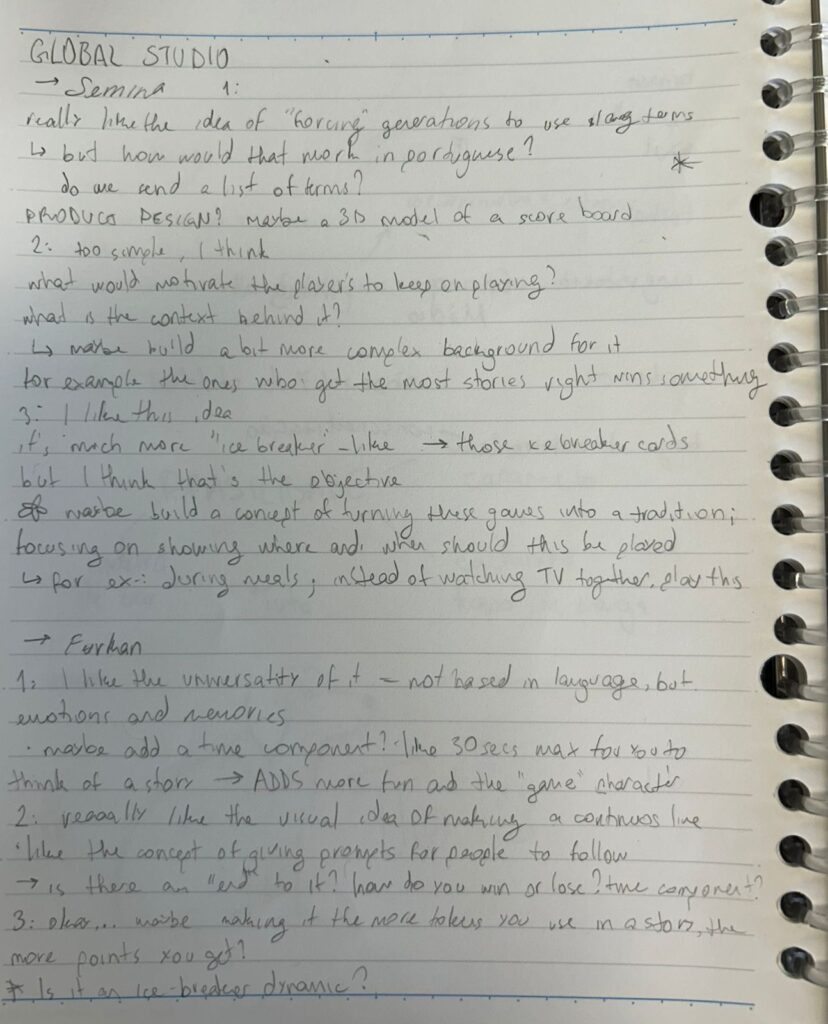 GLOBAL STUDIO
→ Semina 1:
really like the idea of "forcing" generations to use slang terms
↳ but how would that work in portuguese? *
do we send a list of terms?
PRODUCT DESIGN? maybe a 3D model of a score board
2: too simple, I think
what would motivate the players to keep on playing?
what is the context behind it?
↳ maybe build a bit more complex background for it
for example the ones who get the most stories right wins something
3: I like this idea
it's much more "ice breaker"-like → those icebreaker cards
but I think that's the objective
maybe build a concept of turning these games into a tradition;
focusing on showing where and when should this be played
↳ for ex.: during meals; instead of watching TV together, play this
→ Furkan
1: I like the universality of it – not based in language, but
emotions and memories
· maybe add a time component? like 30 secs max for you to
think of a story → ADDS more fun and the "game" character
2: reaaally like the visual idea of making a continuos line
· like the concept of giving prompts for people to follow
→ is there an "end" to it? how do you win or lose? time component?
3: okay... maybe making it the more tokens you use in a story, the
more points you get?
* Is it an ice-breaker dynamic?